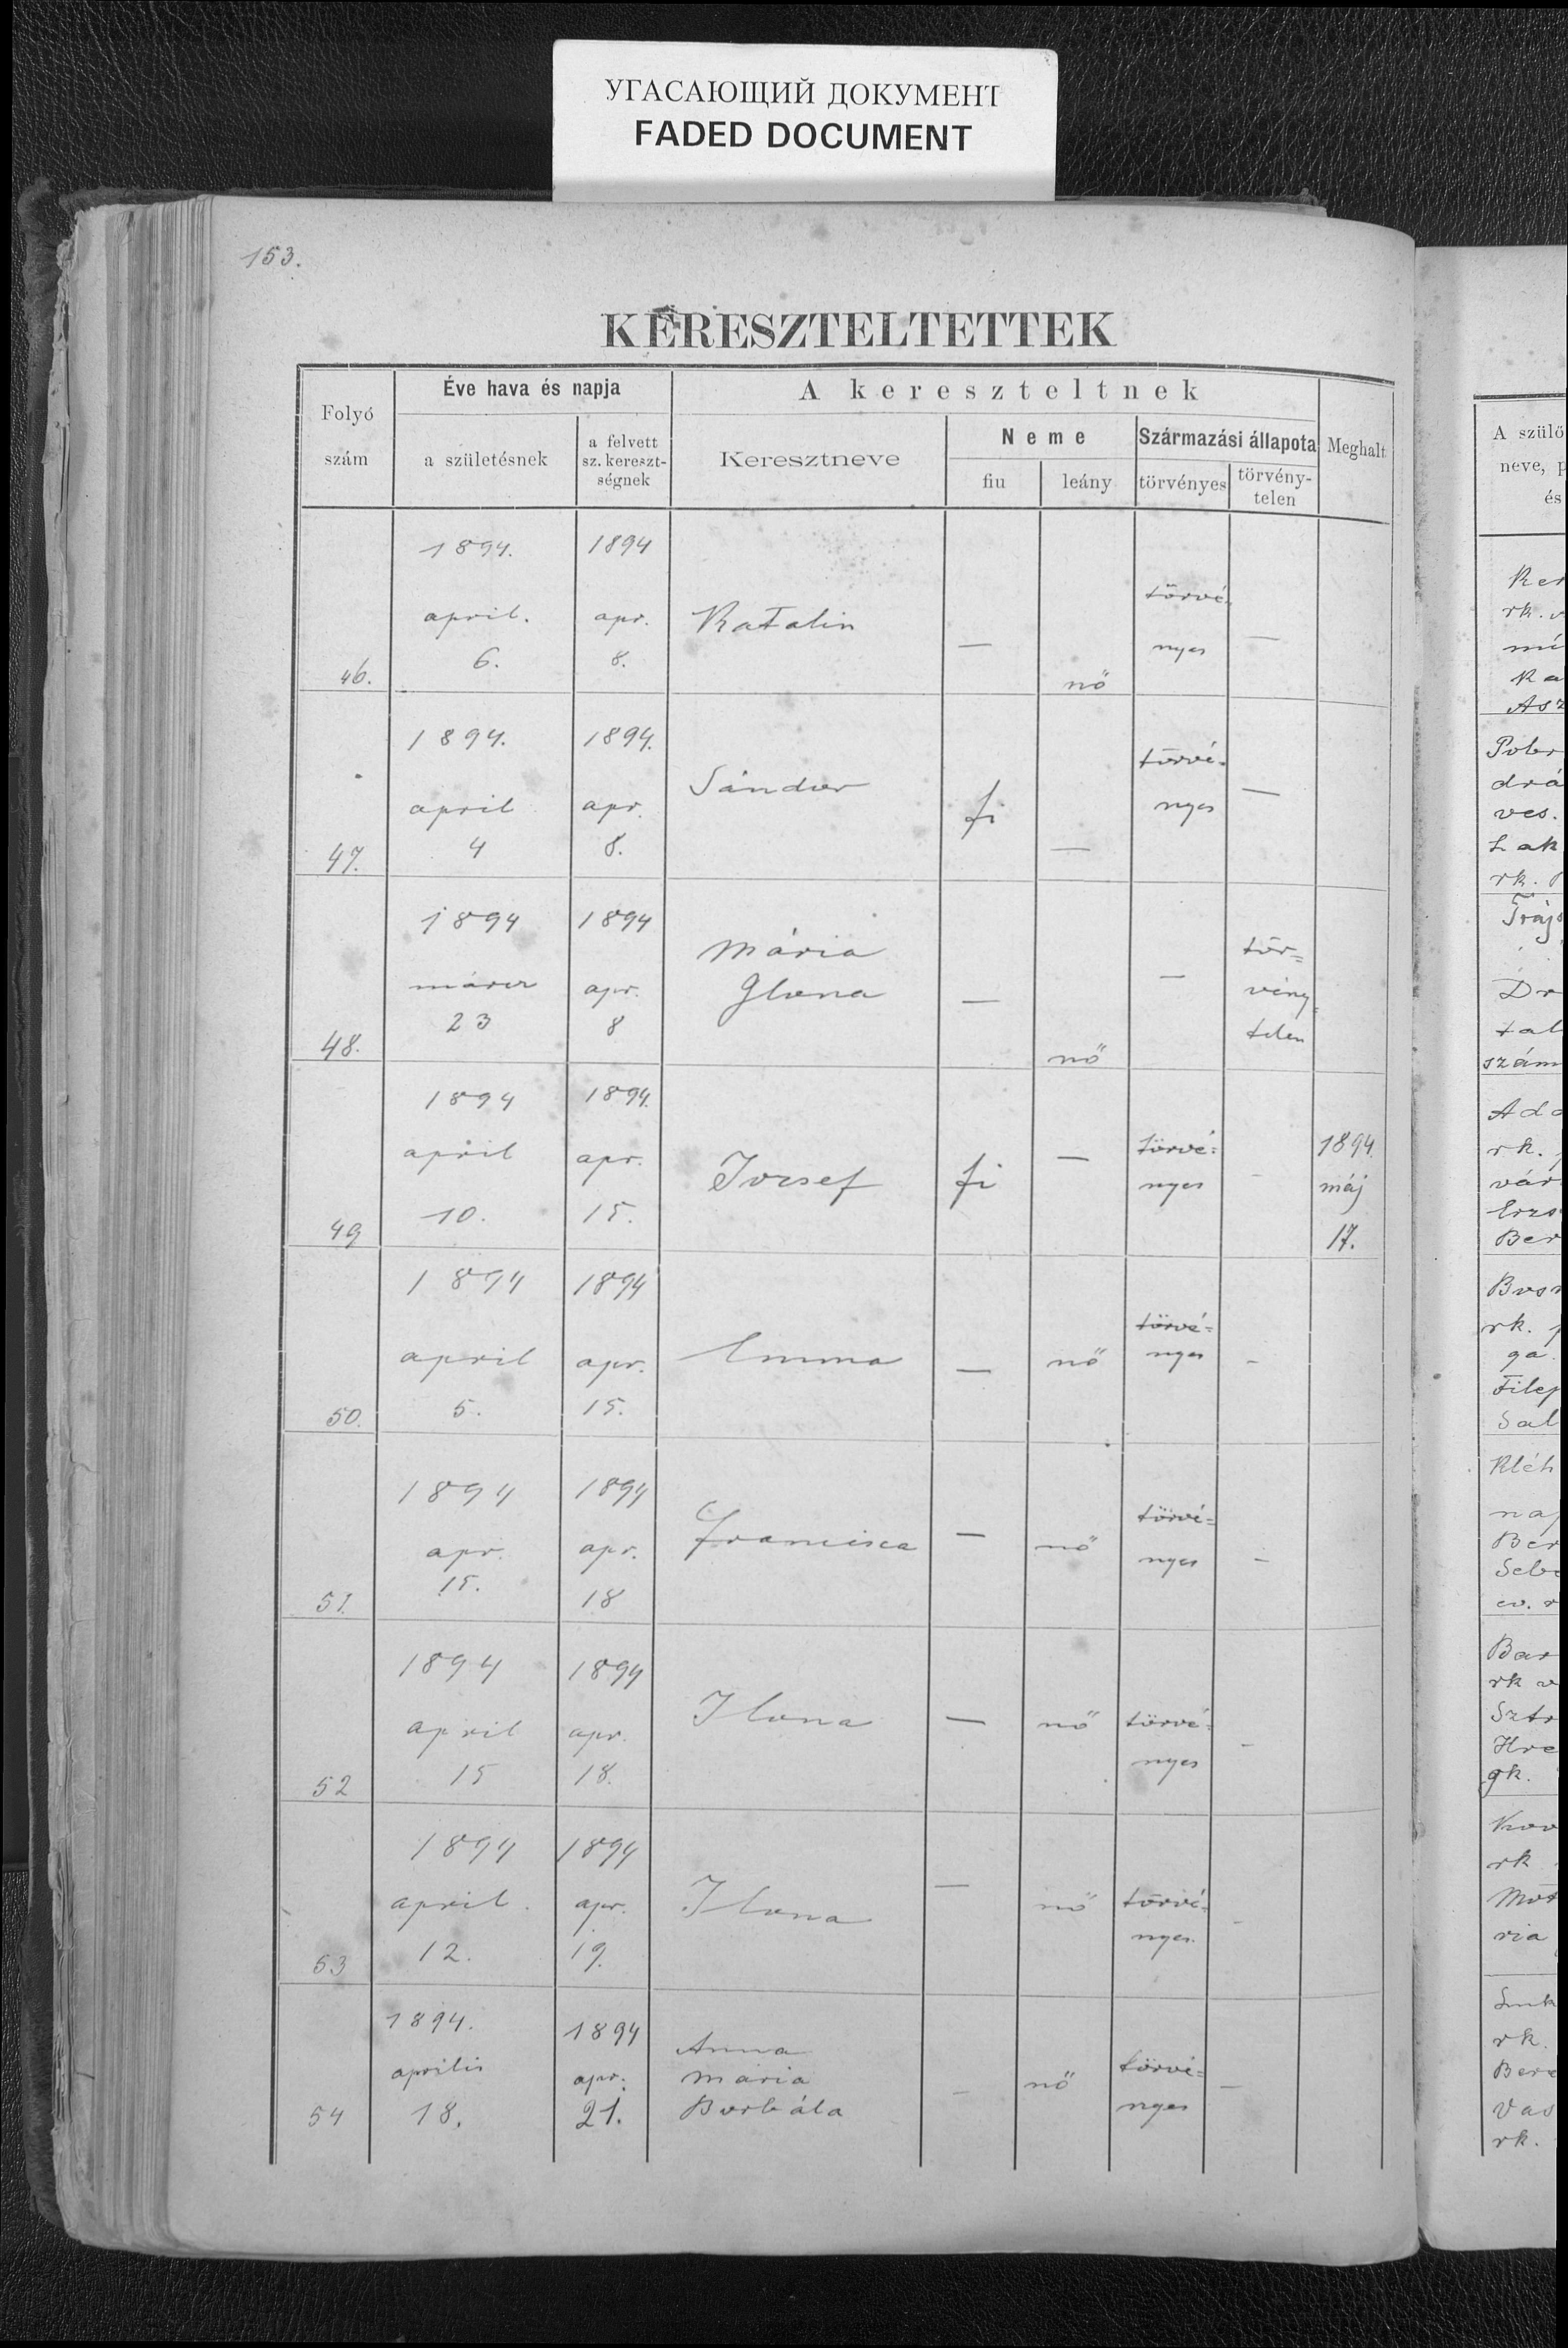 УГАСАЮЩИЙ ДОКУМЕНТ
FADED DOCUMENT
153.
KERESZTELTETTEK
Folyó
szám
Éve hava és napja
a születésnek
a felvett
sz. kereszt-
ségnek
A kereszteltnek
Keresztneve
Neme
fiu
leány
Származási állapota
törvényes
törvény-
telen
Meghalt
46.
1894.
april.
6.
1894
apr.
8.
Katalin
—
nő
törvé-
nyes
—
47.
1894.
april
4
1894.
apr.
8.
Sándor
fi
—
törvé-
nyes
—
48.
1894
márcz
23
1894
apr.
8
Mária
Ilona
—
nő
—
tör=
vény=
telen
49
1894
april
10.
1894.
apr.
15.
Jozsef
fi
—
törvé=
nyes
-
1894.
máj
17.
50.
1894
april
5.
1894
apr.
15.
Emma
—
nő
törvé=
nyes
-
51.
1894
apr.
15.
1894
apr.
18
Francisca
—
nő
törvé=
nyes
-
52
1894
april
15
1894
apr.
18.
Ilona
—
nő
törvé=
nyes
-
53
1894
april.
12.
1894
apr.
19.
Ilona
—
nő
törvé=
nyes.
-
54
1894.
aprilis
18.
1894
apr.
21.
Anna
Mária
Borbála
-
nő
törvé=
nyes
—
A szülő
neve, p
és
Ker
rk. v
mí
Ka
Asz
Pobr
drá
ves.
Lak
rk.
Trájs
Dr
tal
szám
Ada
rk.
vár
Erzs
Ber
Bosn
rk.
ga.
Filep
Sal
Kléh
nap
Ber
Sebe
ev. r
Bar
rk v
Sztr
Hre
gk.
Kov
rk
Mot
ria
Smk
rk.
Bere
Vas
rk.